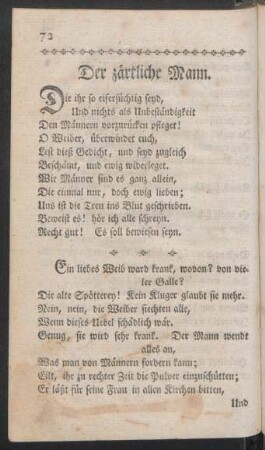 72
Der zärtliche Mann.
Die ihr so eifersüchtig seyd,
Und nichts als Unbeständigkeit
Den Männern vorzurücken pfleget!
O Weiber, überwindet euch,
Lest dieß Gedicht, und seyd zugleich
Beschämt, und ewig widerleget.
Wir Männer sind es ganz allein,
Die einmal nur, doch ewig lieben;
Uns ist die Treu ins Blut geschrieben.
Beweist es! hör ich alle schreyn.
Recht gut! Es soll bewiesen seyn.
Ein liebes Weib ward krank, wovon? von vie-
ler Galle?
Die alte Spötterey! Kein Kluger glaubt sie mehr.
Nein, nein, die Weiber siechten alle,
Wenn dieses Uebel schädlich wär.
Genug, sie wird sehr krank. Der Mann wendt
alles an,
Was man von Männern fordern kann;
Eilt, ihr zu rechter Zeit die Pulver einzuschütten;
Er läßt für seine Frau in allen Kirchen bitten,
Und